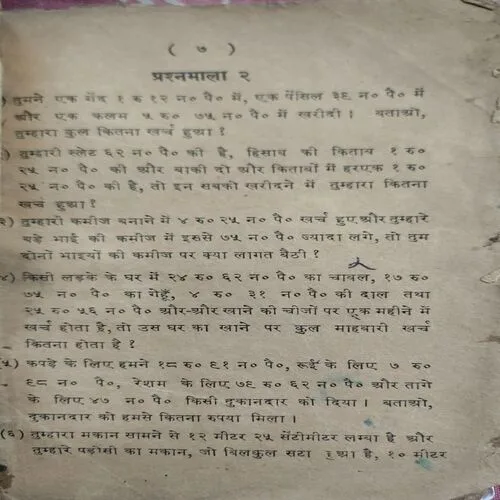 ( ७ )
प्रश्नमाला २
) तुमने एक गेंद १ रु १२ न० पै० में, एक पेंसिल ३९ न० पै० में
और एक कलम ५ रु० ७५ न० पै० में खरीदी । बताओ,
तुम्हारा कुल कितना खर्च हुआ ?
) तुम्हारी स्लेट ६२ न० पै० की है, हिसाब की किताब १ रु०
२५ न० पै० की और बाकी दो और किताबों में हरएक १ रु०
२५ न० पै० की है, तो इन सबको खरीदने में तुम्हारा कितना
खर्च हुआ ?
३) तुम्हारी कमीज बनाने में ४ रु० २५ न० पै० खर्च हुए और तुम्हारे
बड़े भाई की कमीज में इससे ७५ न० पै० ज्यादा लगे, तो तुम
दोनों भाइयों की कमीज पर क्या लागत बैठी ?
४) किसी लड़के के घर में २४ रु० ६२ न० पै० का चावल, १७ रु०
७५ न० पै० का गेहूँ, ४ रु० ३१ न० पै० की दाल तथा
२५ रु० ५६ न० पै० और-और खाने की चीजों पर एक महीने में
खर्च होता है, तो उस घर का खाने पर कुल माहवारी खर्च
कितना होता है ?
(५) कपड़े के लिए हमने १८ रु० ९१ न० पै०, रूई के लिए ७ रु०
९८ न० पै०, रेशम के लिए ७९ रु० ६२ न० पै० और तागे
के लिए ४७ न० पै० किसी दुकानदार को दिया । बताओ,
दुकानदार को हमसे कितना रुपया मिला ।
(६) तुम्हारा मकान सामने से १२ मीटर २५ सेंटीमीटर लम्बा है और
तुम्हारे पड़ोसी का मकान, जो बिलकुल सटा हुआ है, १० मीटर